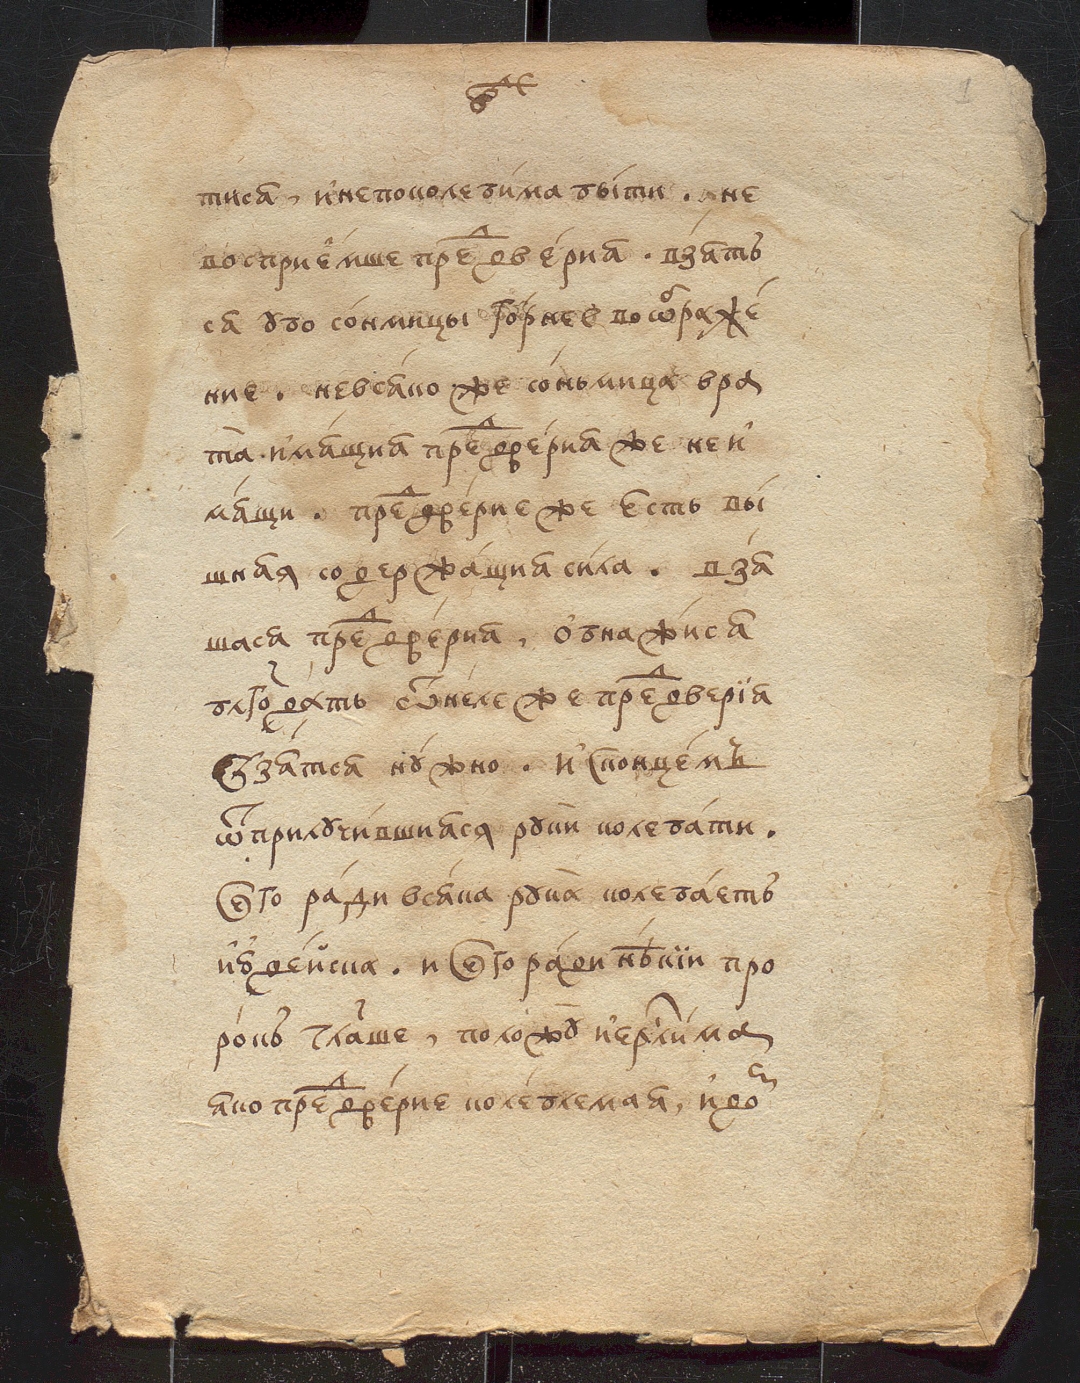 тисѧ, и҆непоколеби́ма бы́ти. не
восприе́мше пре́ⷣдве́рїѧ. взѧ́тъ
сѧ ꙋбо со́нмицы го́рнее воѡбраже́
ние. невсѧ́ко же со́ньмица вра
та̀ и҆мѧ́щиѧ пре́ⷣдве́риѧ же не и҆
мѧ́щи. пре́ⷣдве́рие же є҆сть вы́
шнѧѧ содержа́щиѧ си́ла. взѧ́
шасѧ пре́ⷣдве́риѧ, ѻ҆бнажи́сѧ
бл҃года́ть ѿне́леже пре́ⷣдверїѧ
взѧ́тсѧ нꙋ́жно. и҆ конце́мъ
ѿ прилꙋчи́вшиѧсѧ рꙋкѝ колеба́ти.
сего ра́ди всѧ́ка рꙋка̀ колеба́етъ
и҆ꙋде́йска. и сего ра́ди нѣ́кїи про
ро́къ гл҃аше, положꙋ̀ и҆ерⷭ҇ли́ма
ѧко пре́ⷣдве́рие коле́блемаѧ, и҆ до